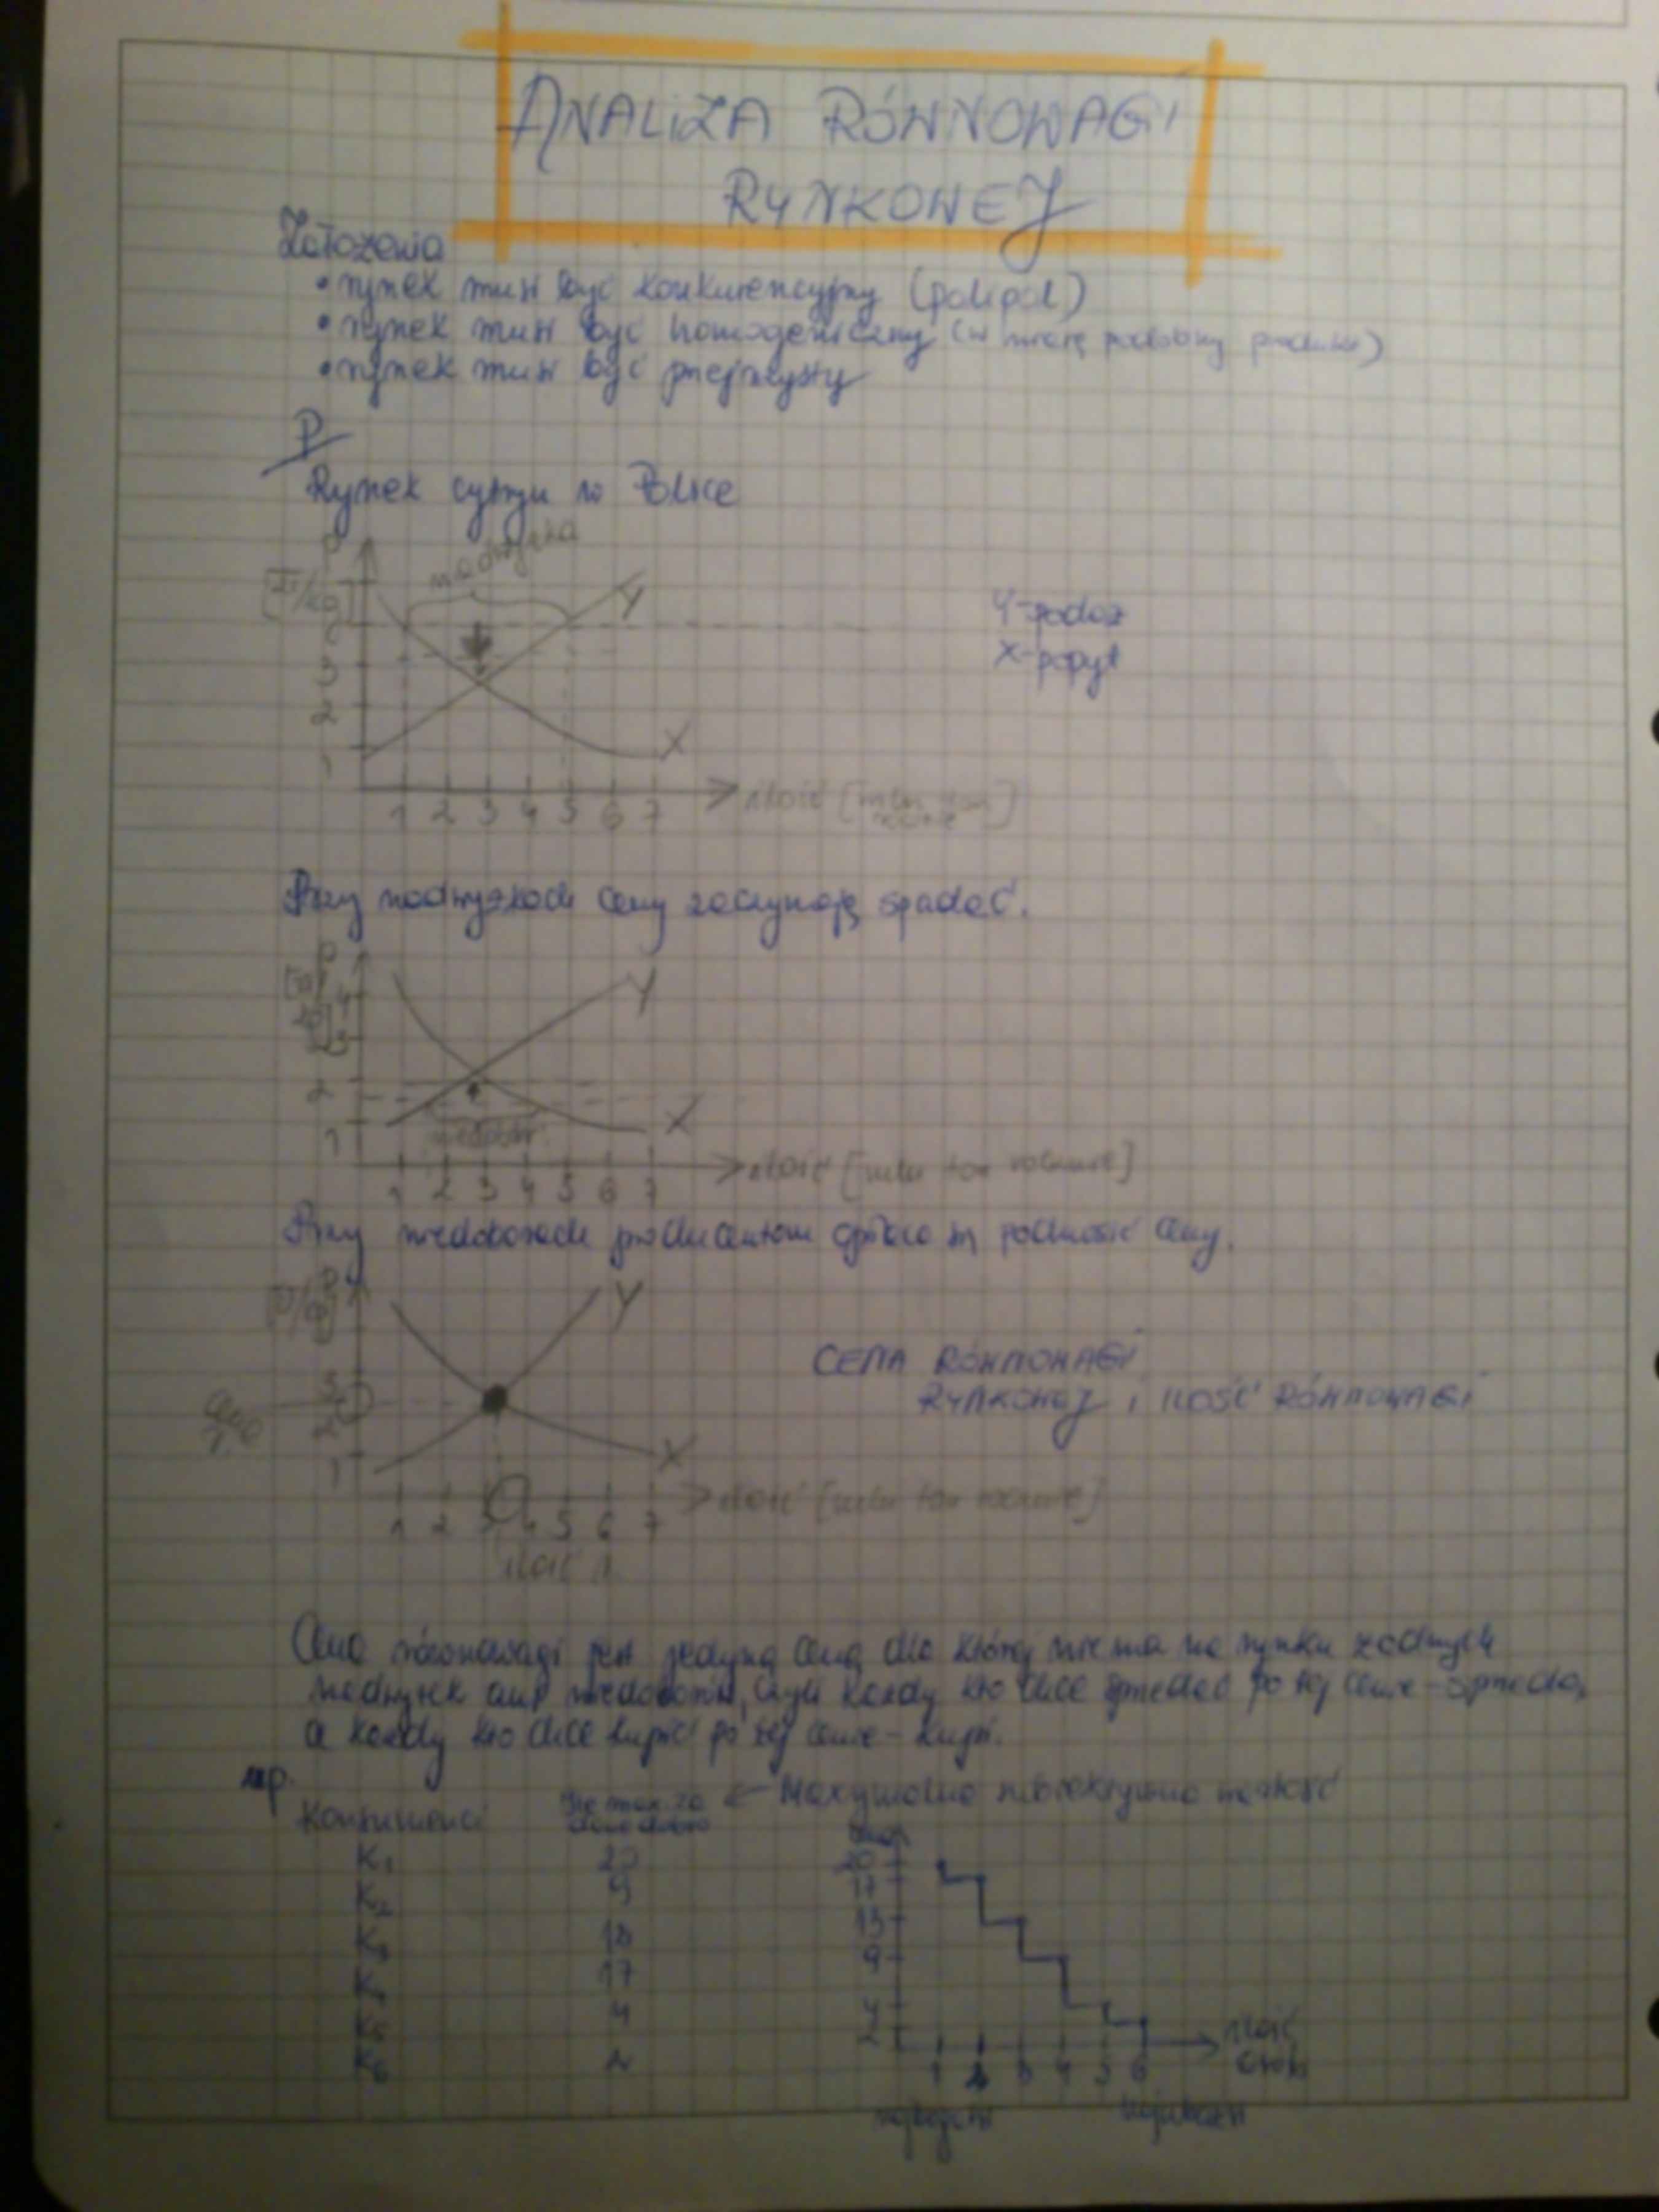 ANALIZA RÓWNOWAGI
RYNKOWEJ
Założenia
• rynek musi być konkurencyjny (polipol)
• rynek musi być homogeniczny (w miarę podobny produkt)
• rynek musi być przejrzysty
P
Rynek cytryn w Polsce
P
[zł/kg]
nadwyżka
Y
Y-podaż
X-popyt
3
2
1
X
1 2 3 4 5 6 7
ilość [mln ton rocznie]
Przy nadwyżkach ceny zaczynają spadać.
P
4
3
2
1
Y
X
niedobór
1 2 3 4 5 6 7
ilość [mln ton rocznie]
Przy niedoborach producentom opłaca się podnosić ceny.
P
[zł/kg]
Y
CENA RÓWNOWAGI
RYNKOWEJ i ILOŚĆ RÓWNOWAGI
cena
3
2
1
X
1 2 3 4 5 6 7
ilość [mln ton rocznie]
ilość
Cena równowagi jest jedyną ceną dla której nie ma na rynku żadnych
nadwyżek ani niedoborów, czyli każdy kto chce sprzedać po tej cenie - sprzeda,
a każdy kto chce kupić po tej cenie - kupi.
np.
Konsumenci
← Maxymalna subiektywna wartość
K1 20
K2 9
K3
17
4
K6 2
20
17
13
9
4
2
1 2 3 4 5 6
ilość
najbogatsi